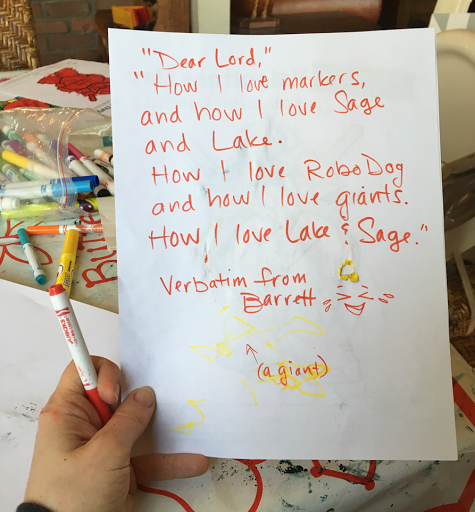 "Dear Lord,"
"How I love markers,
and how I love Sage
and Lake.
How I love RoboDog
and how I love giants.
How I love Lake & Sage."
Verbatim from
Barrett
(a giant)